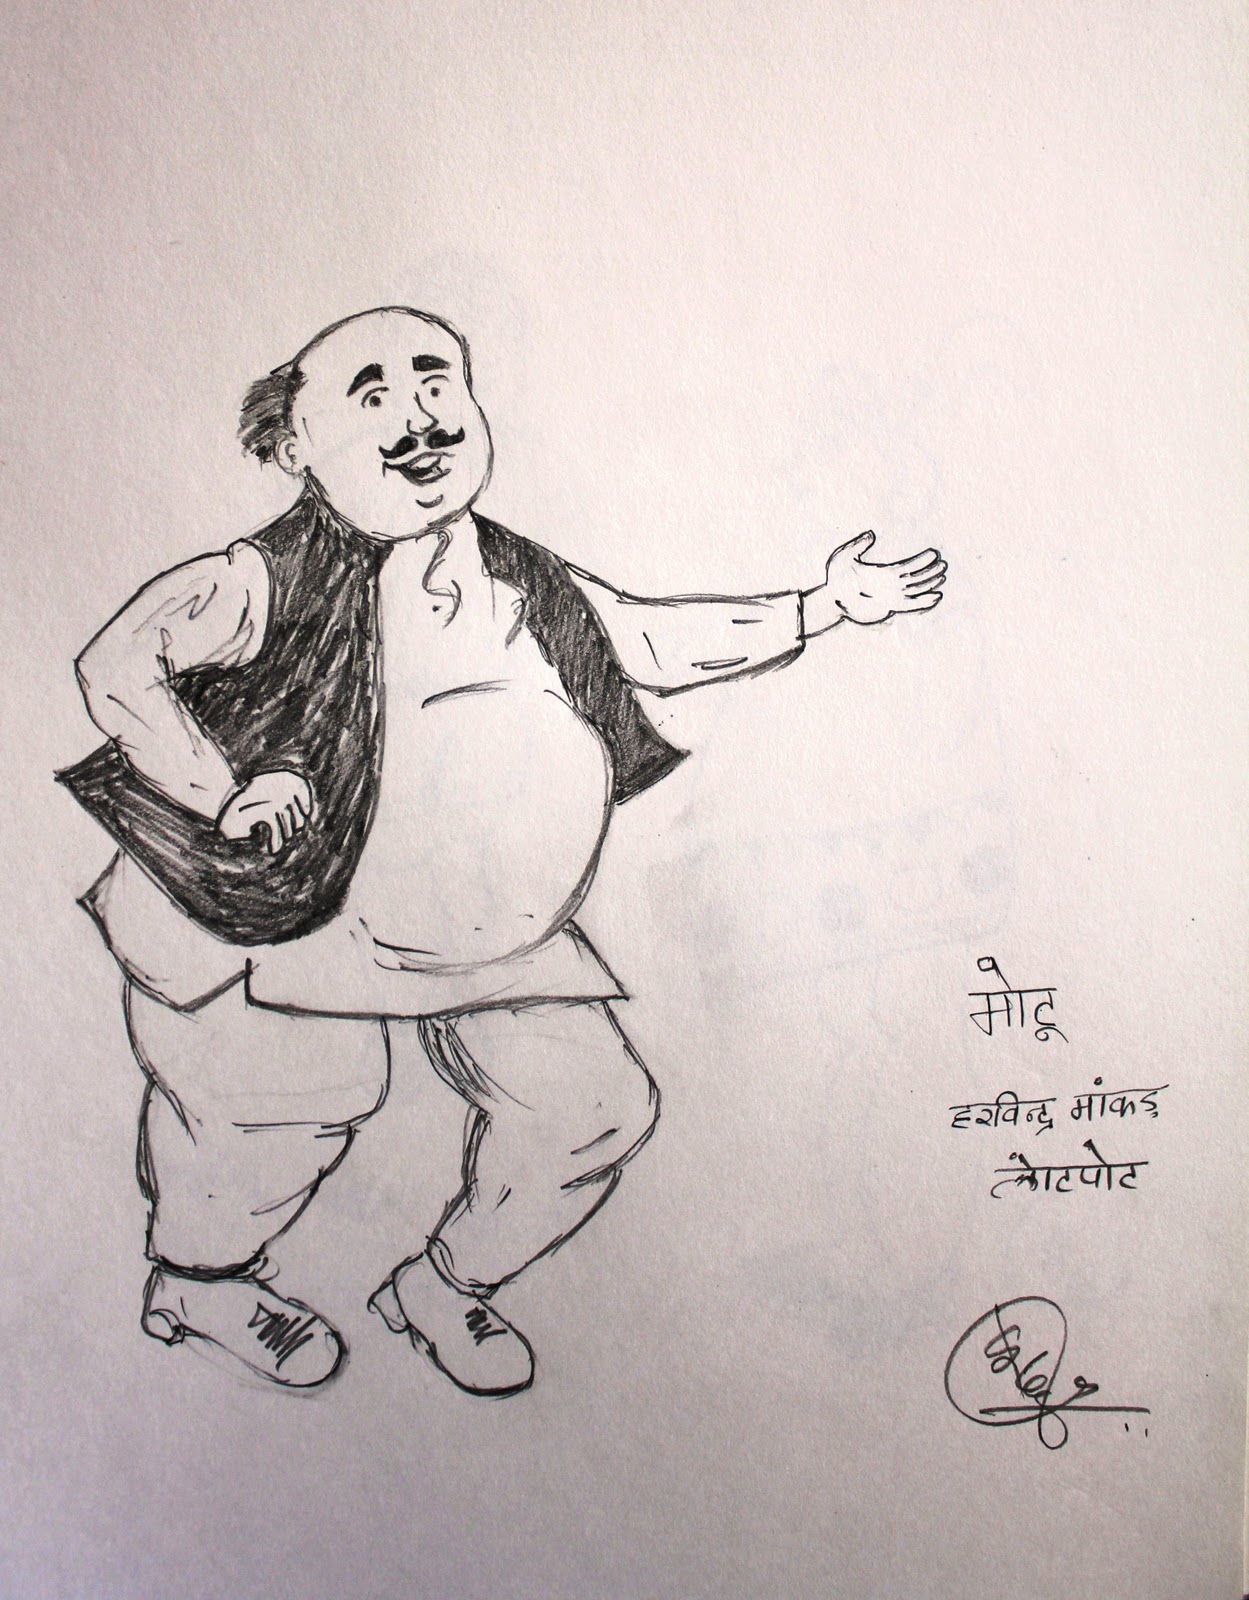 मोटू
हरविन्द्र मांकड़
लोटपोट